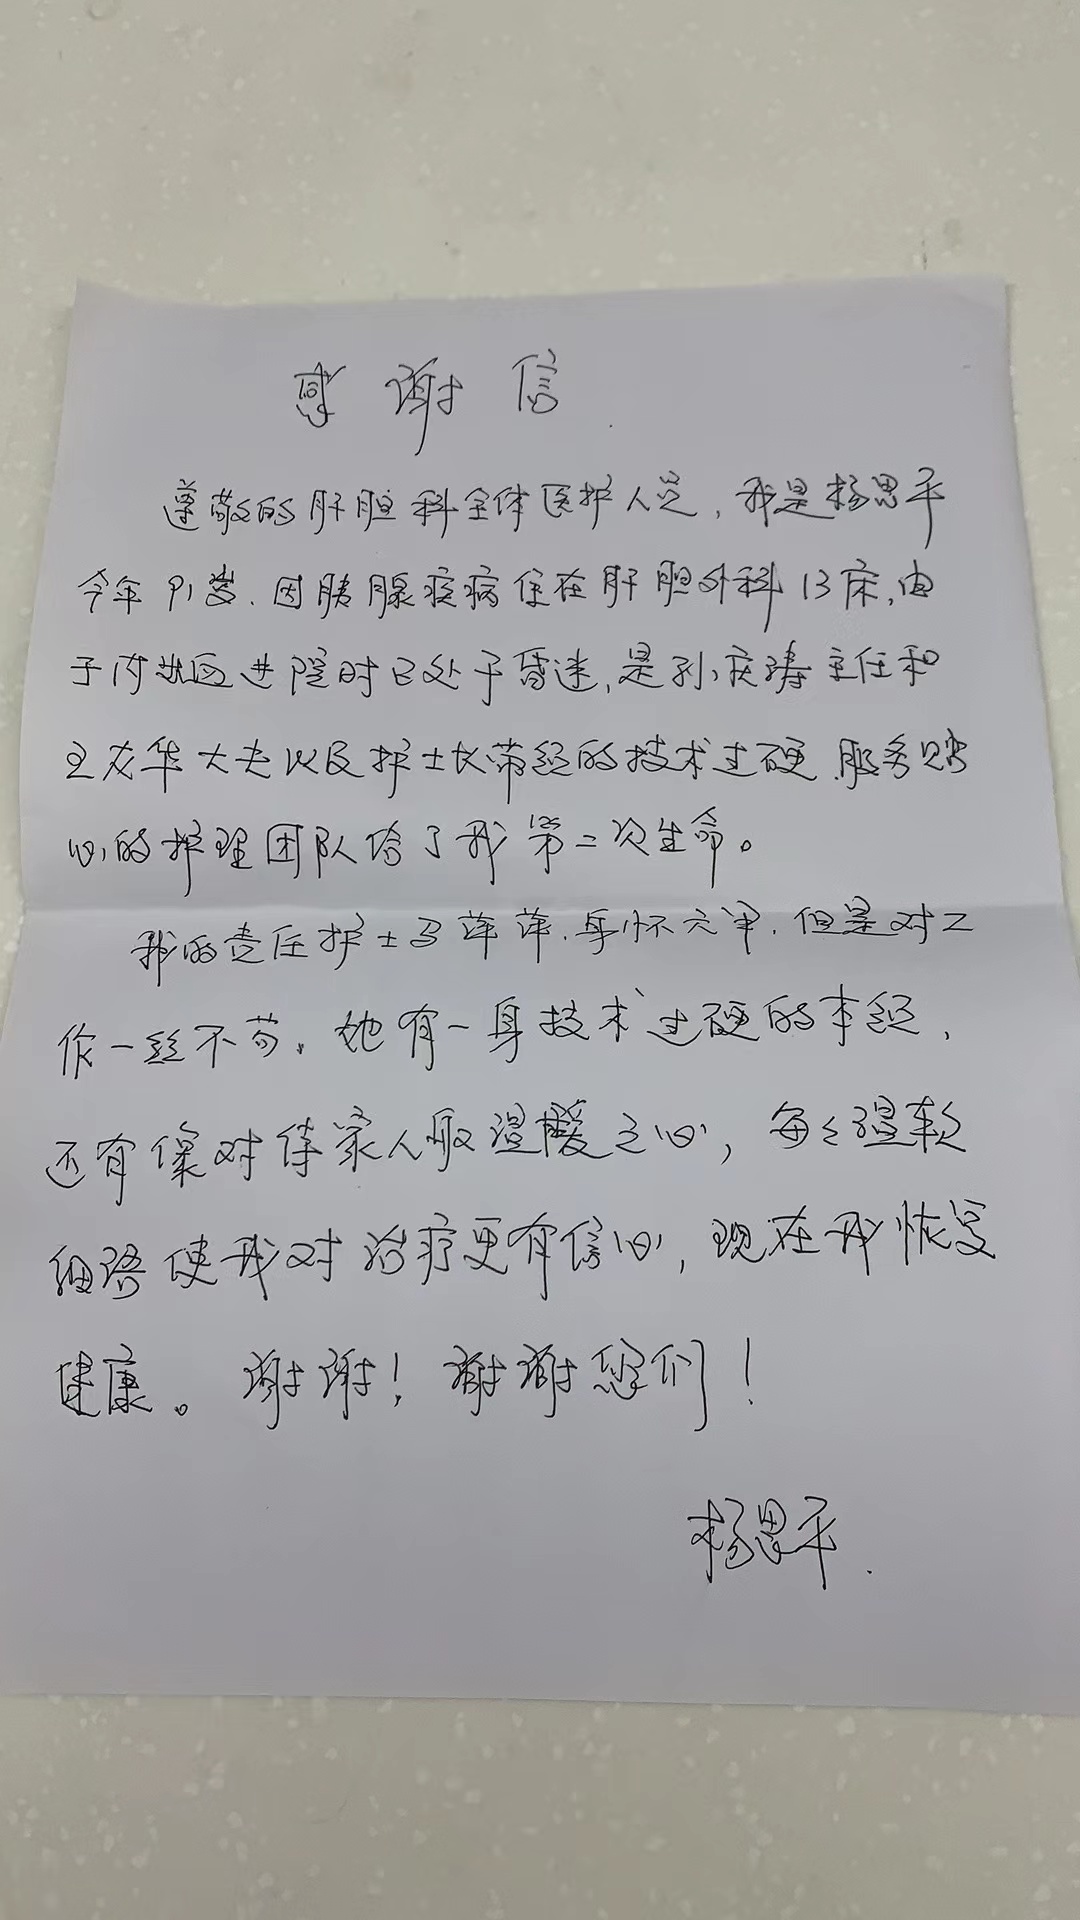 感谢信
尊敬的肝胆科全体医护人员，我是杨思平
今年91岁.因胰腺疾病住在肝胆外科13床,由
于内出血进院时已处于昏迷,是孙庆涛主任和
王友华大夫以及护士长带领的技术过硬.服务贴
心的护理团队给了我第二次生命。
我的责任护士马萍萍.身怀六甲.但是对工
作一丝不苟。她有一身技术过硬的本领,
还有像对待家人般温暖之心，每々温软
细语使我对治疗更有信心，现在我恢复
健康。谢谢！谢谢您们！
杨思平.